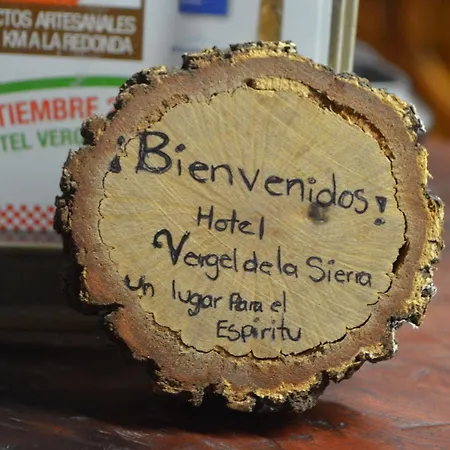 CTOS ARTESANALES
KM A LA REDONDA
TIEMBRE 2
TEL VERG
¡Bienvenidos!
Hotel
Vergel de la Sierra
un lugar Para el
Espíritu